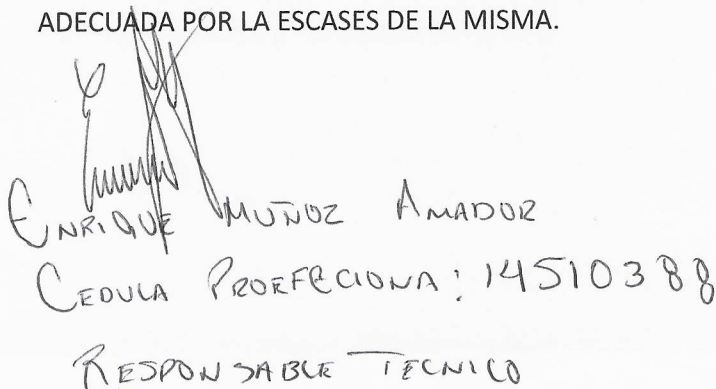 ADECUADA POR LA ESCASES DE LA MISMA.
ENRIQUE MUÑOZ AMADOR
CEDULA PROEFECIONA: 14510388
RESPONSABLE TECNICO